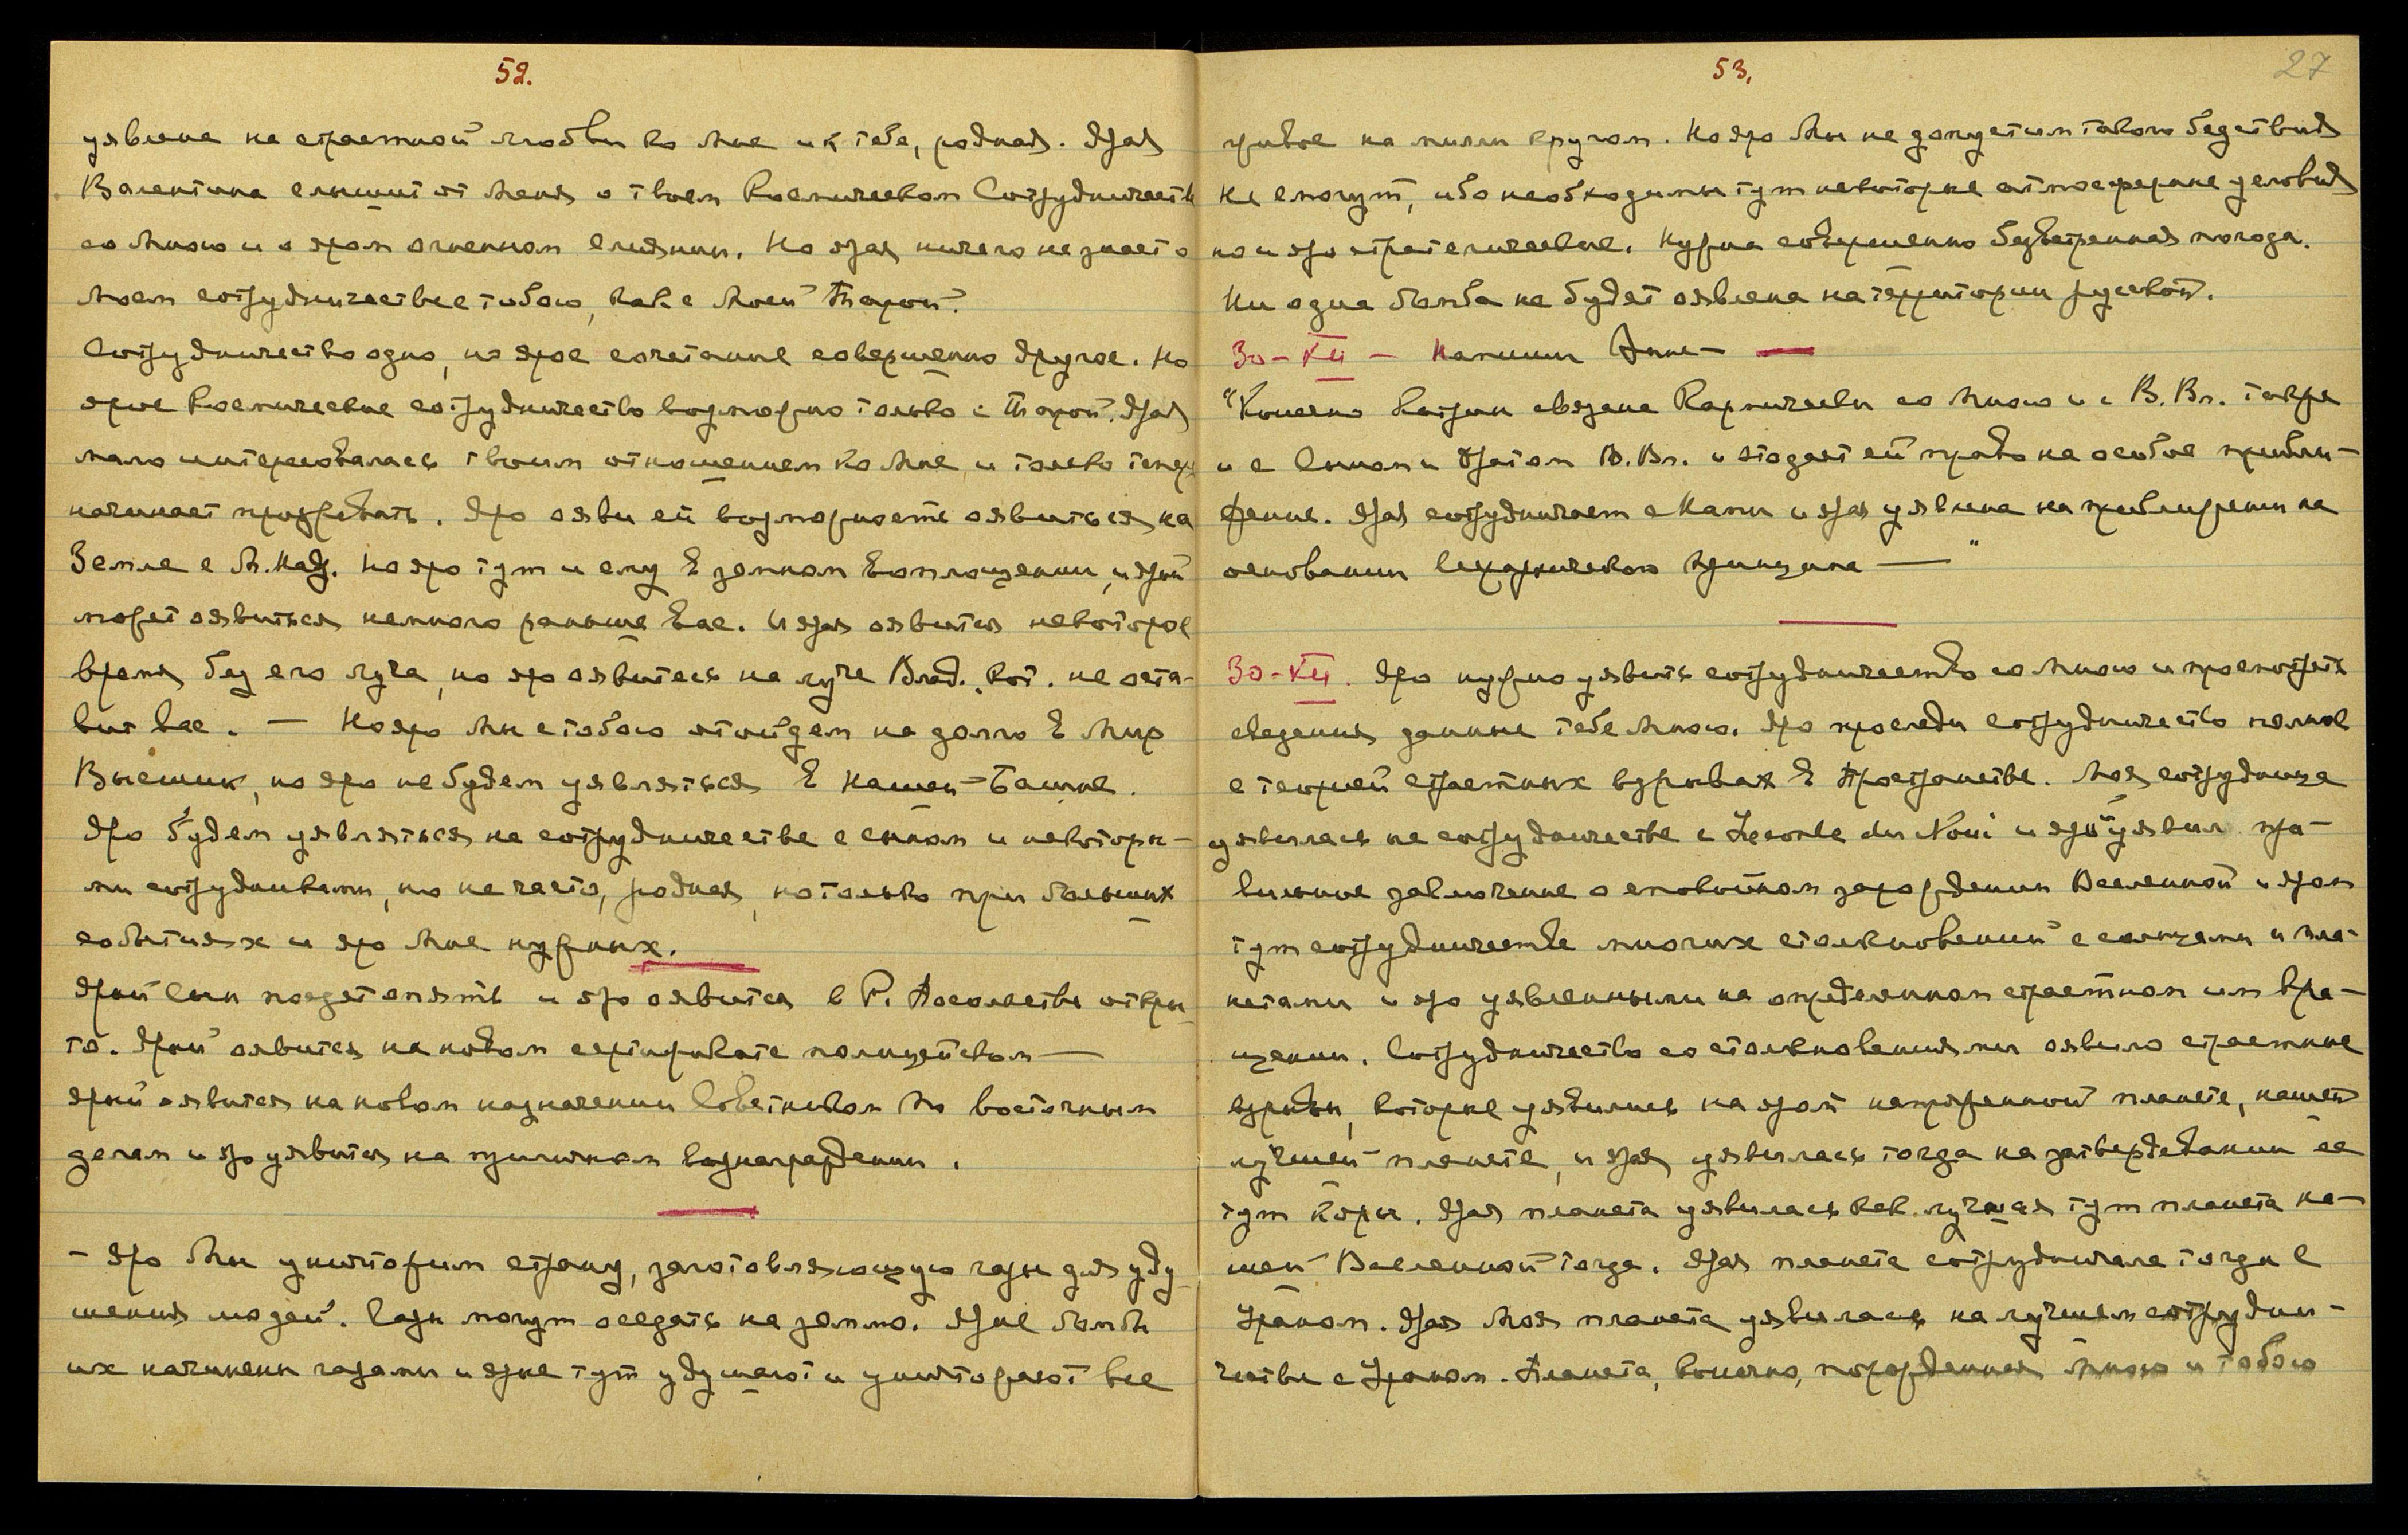 52.
уявлена на страстной любви ко Мне и к тебе, родная. Ярая
Валентина слышит от Меня о твоем Космическом Сотрудничеств
со Мною и о яром огненном слиянии. Но ярая ничего не знает о
Моем сотрудничестве с тобою, как с Моей Тарой.
Сотрудничество одно, но ярое сочетание совершенно другое. Но
ярое Космическое сотрудничество возможно только с Тарой. Ярая
мало интересовалась твоим отношением ко Мне и только тепер
начинает прозревать. Яро яви ей возможность явиться на
Земле с М. Над. Но яро тут и ему в земном воплощении, и ярый
может явиться немного раньше вас. И ярая явится некоторое
время без его луча, но яро явитесь на луче Влад., кот. не оста-
вит вас. — Но яро Мы с тобою отойдем на долго в Мир
Высших, но яро не будем уявляться в Нашей Башне.
Яро будем уявляться на сотрудничестве с сыном и некоторы-
ми сотрудниками, но не часто, родная, но только при больших
событиях и яро Мне нужных.
Ярый Сын поедет опять и яро явится в Р. Посольстве откры
то. Ярый явится на новом сертификате полицейском —
ярый явится на новом назначении Советником по восточным
делам и яро уявится на приличном вознаграждении.
- Яро Мы уничтожим страну, заготовляющую газы для уду
шения людей. Газы могут оседать на землю. Ярые бомбы
их начинены газами и ярые тут удушают и уничтожают все
53.
27
живое на мили кругом. Но яро Мы не допустим такого бедствия
Не смогут, ибо необходимы тут некоторые атмосферные условия
но и яро стратегические. Нужна совершенно безветренная погода.
Ни одна бомба не будет явлена на территории русской.
30-XII - Напиши Анне —
"Конечно Катрин связана Кармически со Мною и с В. Вл. также
и с Сыном и Братом В. Вл. и это дает ей право на особое прибли-
жение. Ярая сотрудничает с Нами и ярая уявлена на приближении на
основании Иерархического принципа —"
30-XII. Яро нужно уявить сотрудничество со Мною и просмотреть
сведения данные тебе Мною. Яро проследи сотрудничество полное
с теорией страстных взрывах в Пространстве. Моя сотрудница
уявилась на сотрудничестве с Lecomte du Noüi и ярый уявил пра-
вильное заключение о спокойном зарождении Вселенной и яром
тут сотрудничестве многих столкновений с солнцами и пла-
нетами и яро уявленными на определенном страстном им вра-
щении. Сотрудничество со столкновениями явило страстные
взрывы, которые уявились на ярой напряженной планете, нашей
лучшей планете, и ярая уявилась тогда на затвердевании ее
тут коры. Ярая планета уявилась как лучшая тут планета на-
шей Вселенной тогда. Ярая планета сотрудничала тогда с
Ураном. Ярая Моя планета уявилась на лучшем сотрудни-
честве с Ураном. Планета, конечно, порожденная Мною и тобою